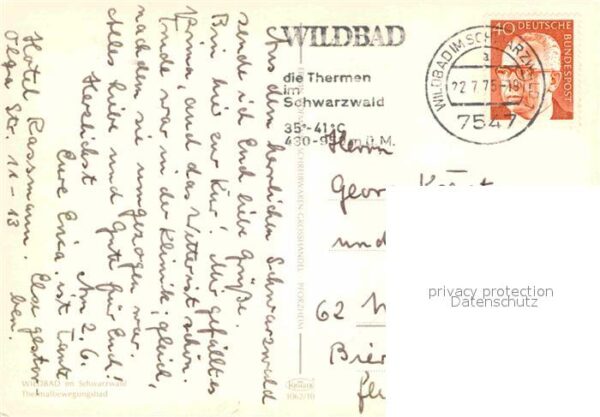 Aus dem herrlichen Schwarzwald
sende ich Euch liebe Grüße.
Bin hier zur Kur! Mir gefällt es
prima, und das Wetter ist schön.
war in der Klinik, gleich,
nachdem sie umgezogen war.
Alles Liebe und Gute für Euch!
Herzlichst
Eure Erika.
Am 2.6. ist Tante Else gestor-
ben.
Hotel Rassmann.
Olga Str. 11-13
WILDBAD im Schwarzwald
Thermalbewegungsbad
WILDBAD
die Thermen
im
Schwarzwald
35°-41°C
430-950 m ü.M.
WILDBAD IM SCHWARZWALD
a
22.7.75-18
7547
40 DEUTSCHE
BUNDESPOST
Herrn
Georg
und
62
Bier
privacy protection
Datenschutz
1062/10